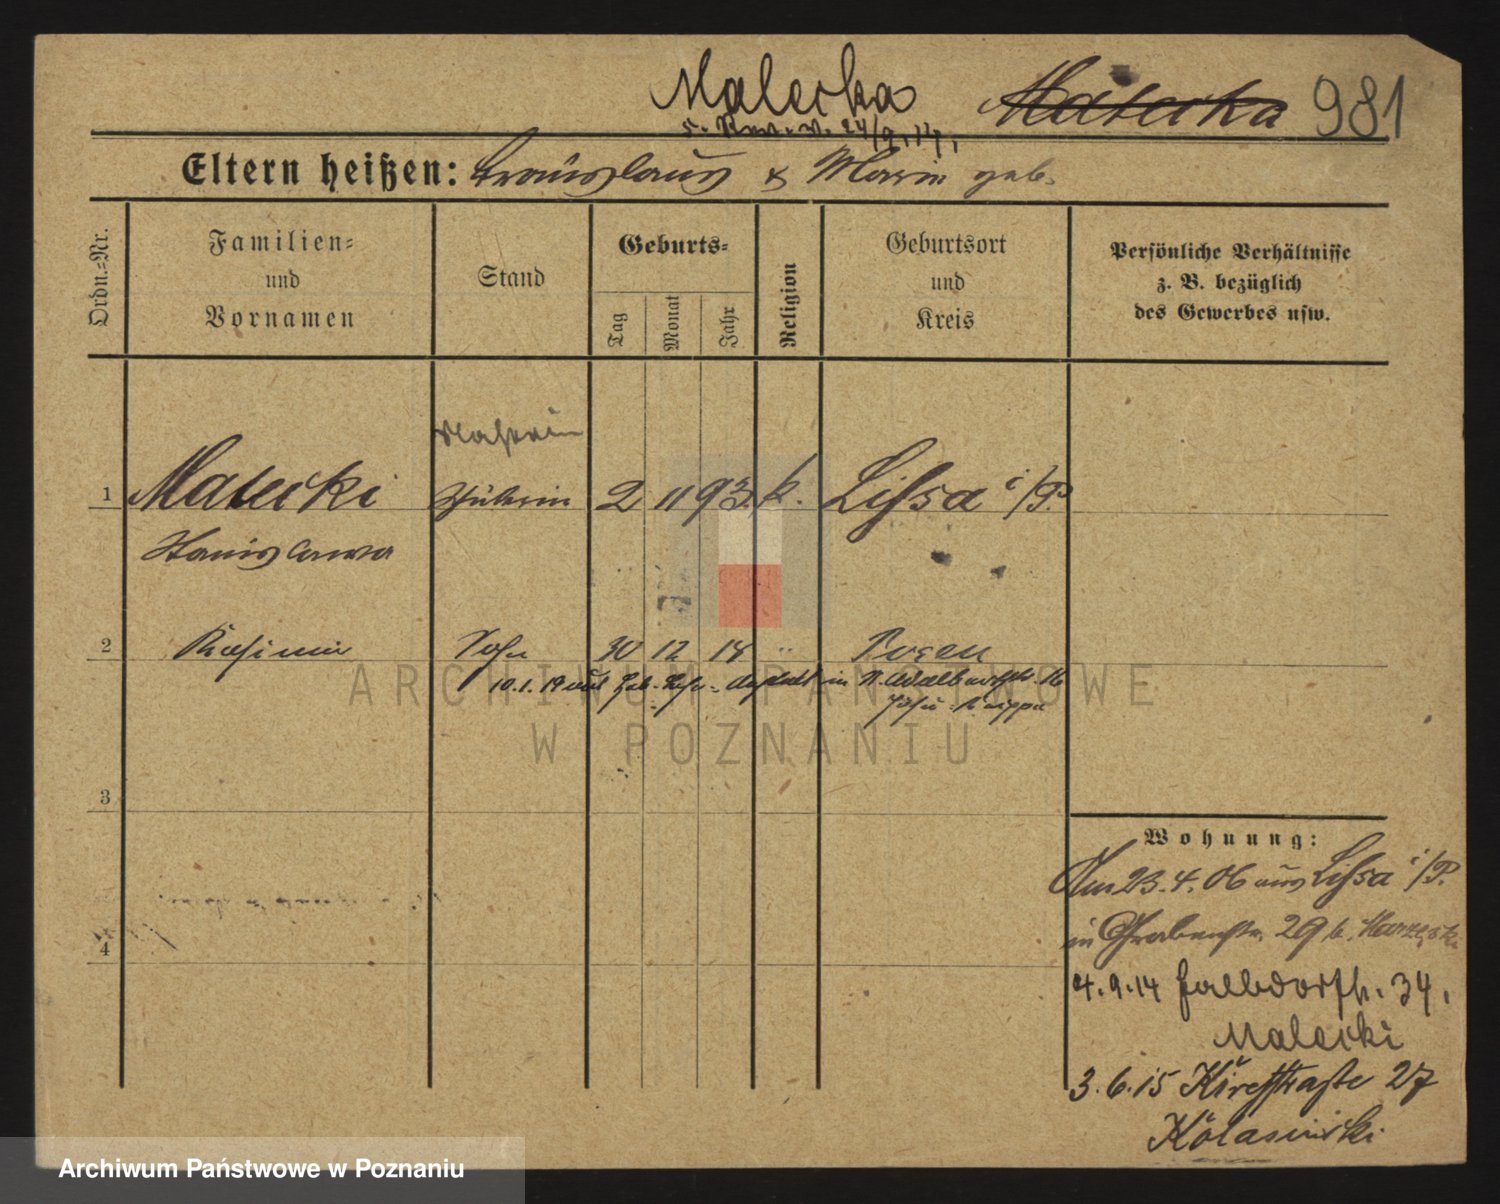 Malecka Malecka 981
v. 24/9.14.
Eltern heißen: & Marie geb.
Ordn.-Nr.
Familien-
und
Vornamen
Stand
Geburts-
Tag
Monat
Jahr
Religion
Geburtsort
und
Kreis
Persönliche Verhältnisse
z. B. bezüglich
des Gewerbes usw.
1 Malecki 2 11 93. k. Lissa i/P.
Stanislawa
2 Kasimir Sohn 30 12 18 " Posen
10.1.19 in
3
4
Wohnung:
Am 23.4.06 aus Lissa i/P.
in Grabenstr. 29 b.
4.9.14 Halbdorfstr. 34,
Malecki
3.6.15 27
Kolasinski
ARCHIWUM PAŃSTWOWE
W POZNANIU
Archiwum Państwowe w Poznaniu